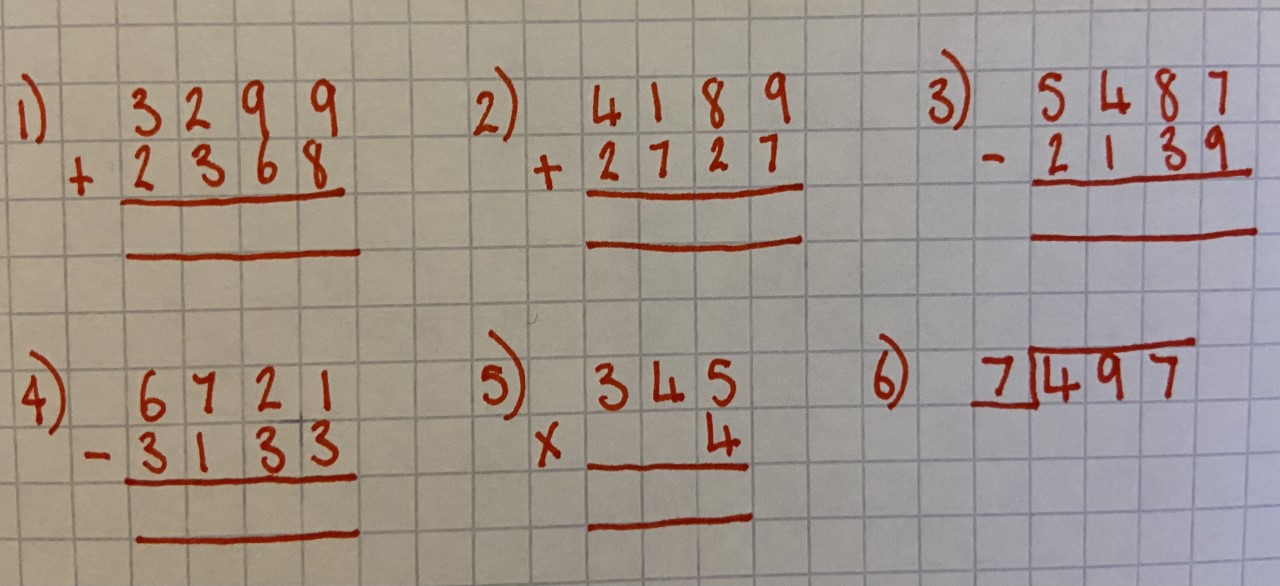 1) 3299
+ 2368
2) 4189
+ 2727
3) 5487
- 2139
4) 6721
- 3133
5) 345
x 4
6) 7 497